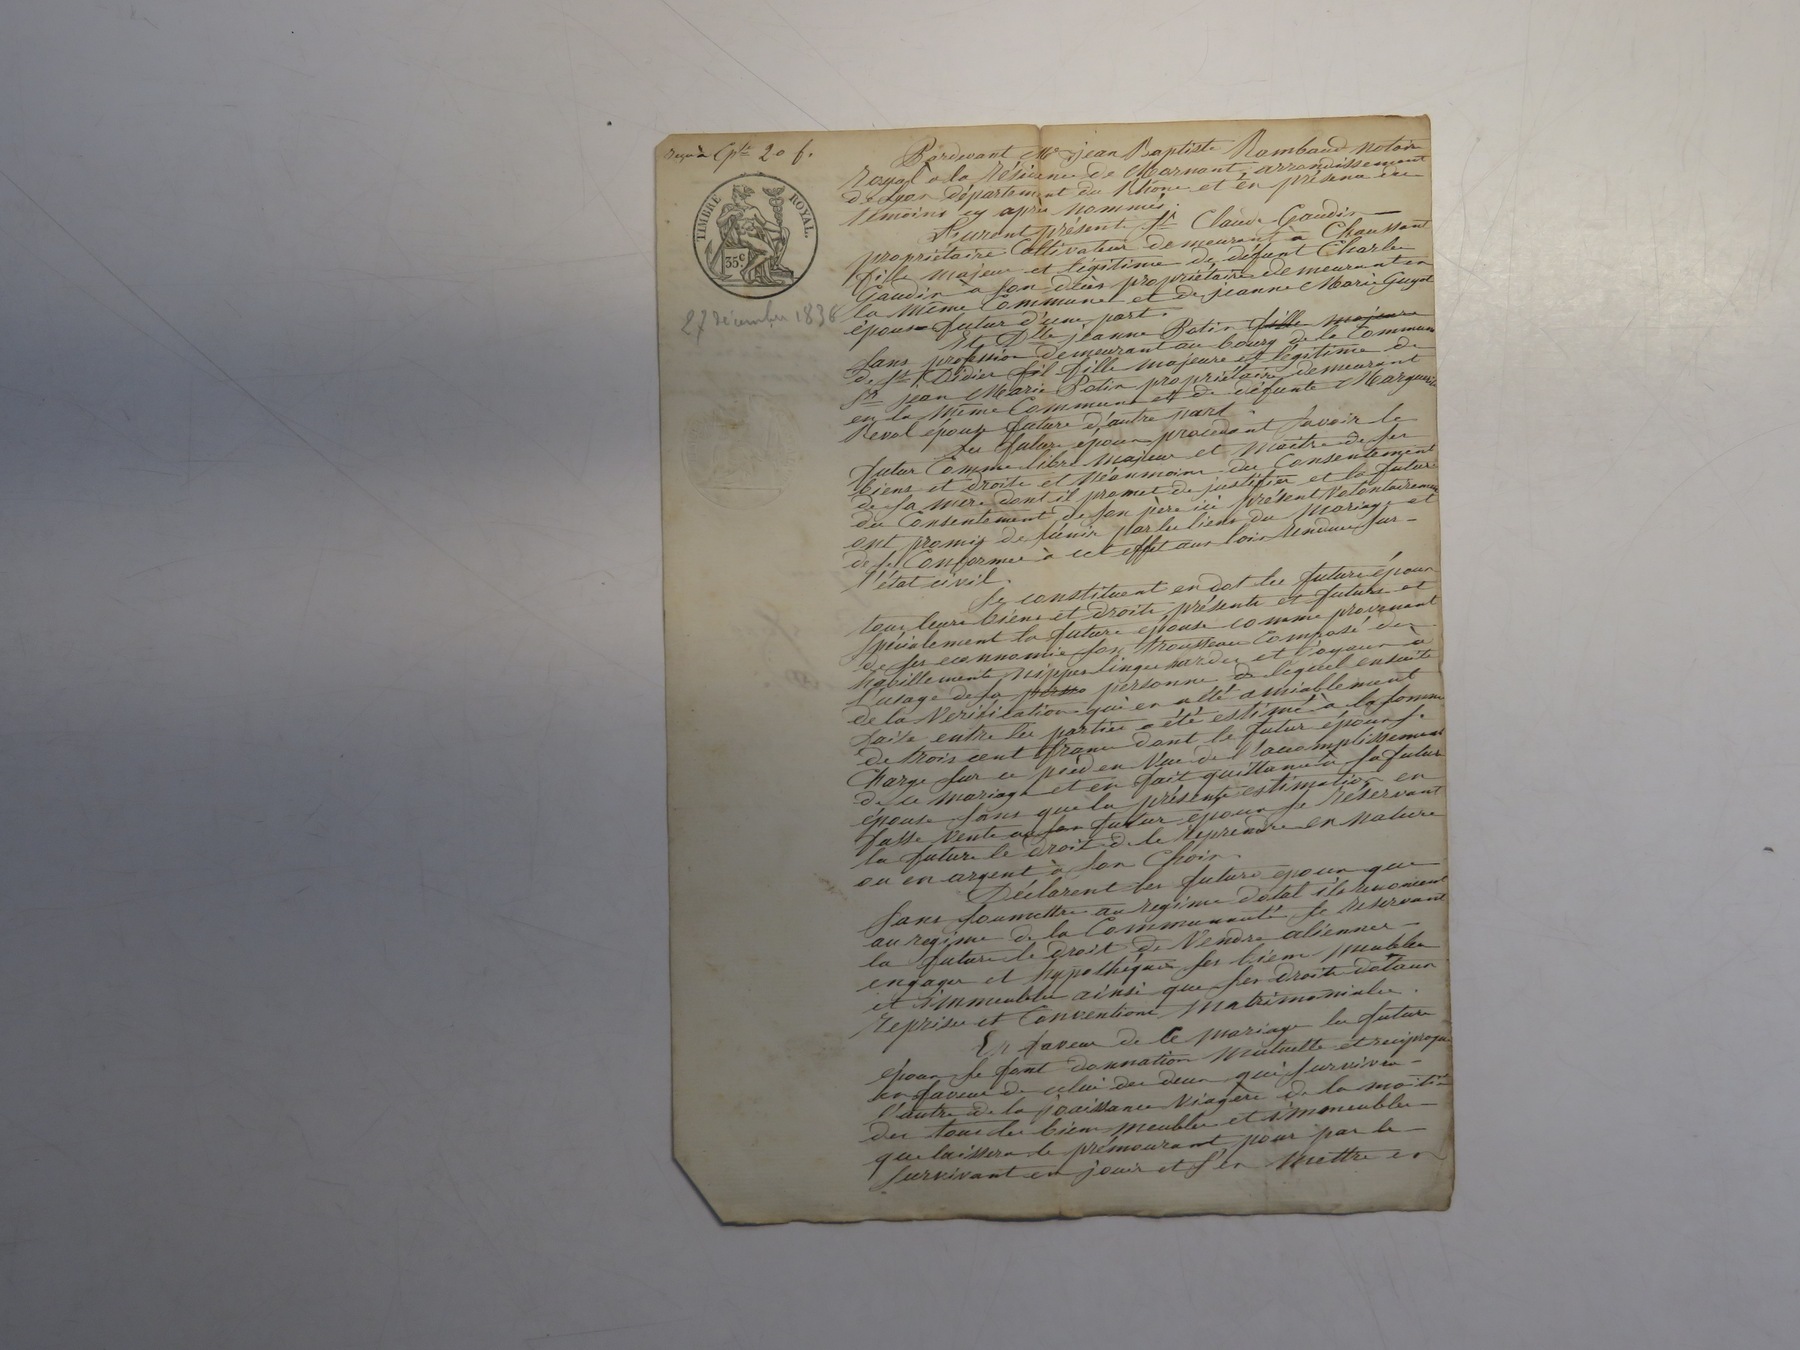 reçu à Cpte 20 f.
TIMBRE ROYAL.
35c
27 décembre 1838
Pardevant Me jean Baptiste Rambaud notaire
Royal à la résidence de Mornant, arrondissement
de Lyon département du Rhône et en présence des
témoins cy après nommés.
Furent présent Sr Claude Gaudin
propriétaire Cultivateur demeurant à Chaussant
fils majeur et légitime de défunt Charles
Gaudin à son décès propriétaire demeurant en
la même Commune et de jeanne Marie Guyot
époux futur d'une part.
Et Dlle jeanne Patin fille majeure
sans profession demeurant au bourg de la Commune
de St Didier fil fille majeure et légitime de
Sr jean Marie Patin propriétaire demeurant
en la même Commune et de défunte Marguerite
Reval épouse future d'autre part.
Les futurs époux procédant savoir le
futur Comme libre majeur et maître de ses
biens et droits et néanmoins du Consentement
de sa mère dont il promet de justifier et la future
du Consentement de son père ici présent Volontairement
ont promis de s'unir par les liens du mariage et
de se Conformer à cet effet aux lois rendues sur
l'état civil.
Se constituent en dot les futurs époux
tous leurs biens et droits présents et futurs et
spécialement la future épouse comme provenant
de ses economies son trousseau Composé de
habillements nippes linges hardes et joyaux à
l'usage de sa personne lequel ensuite
de la Vérification qui en a été amiablement
faite entre les parties a été estimé à la somme
de trois cent francs dont le futur époux se
Charge sur ce pied en Vue de l'accomplissement
de ce mariage et en fait quittance à sa future
épouse sans que la présente estimation en
fasse Vente au futur époux se réservant
la future le droit de le reprendre en nature
ou en argent à son Choix.
Déclarent les futurs epoux que
sans soumettre au regime dotal ils renoncent
au regime de la Communauté se reservant
la future le droit de Vendre aliénner
engager et hypothéquer ses biens meubles
et immeubles ainsi que ses droits dotaux
reprises et Conventions Matrimoniales.
En faveur de Ce mariage les futurs
époux se font donnation Mutuelle et réciproque
en faveur de celui des deux qui survivra
l'autre de la jouissance Viagère de la moitié
des tous les biens meubles et immeubles
que laissera le prémourant pour par le
survivant en jouir et s'en mettre en